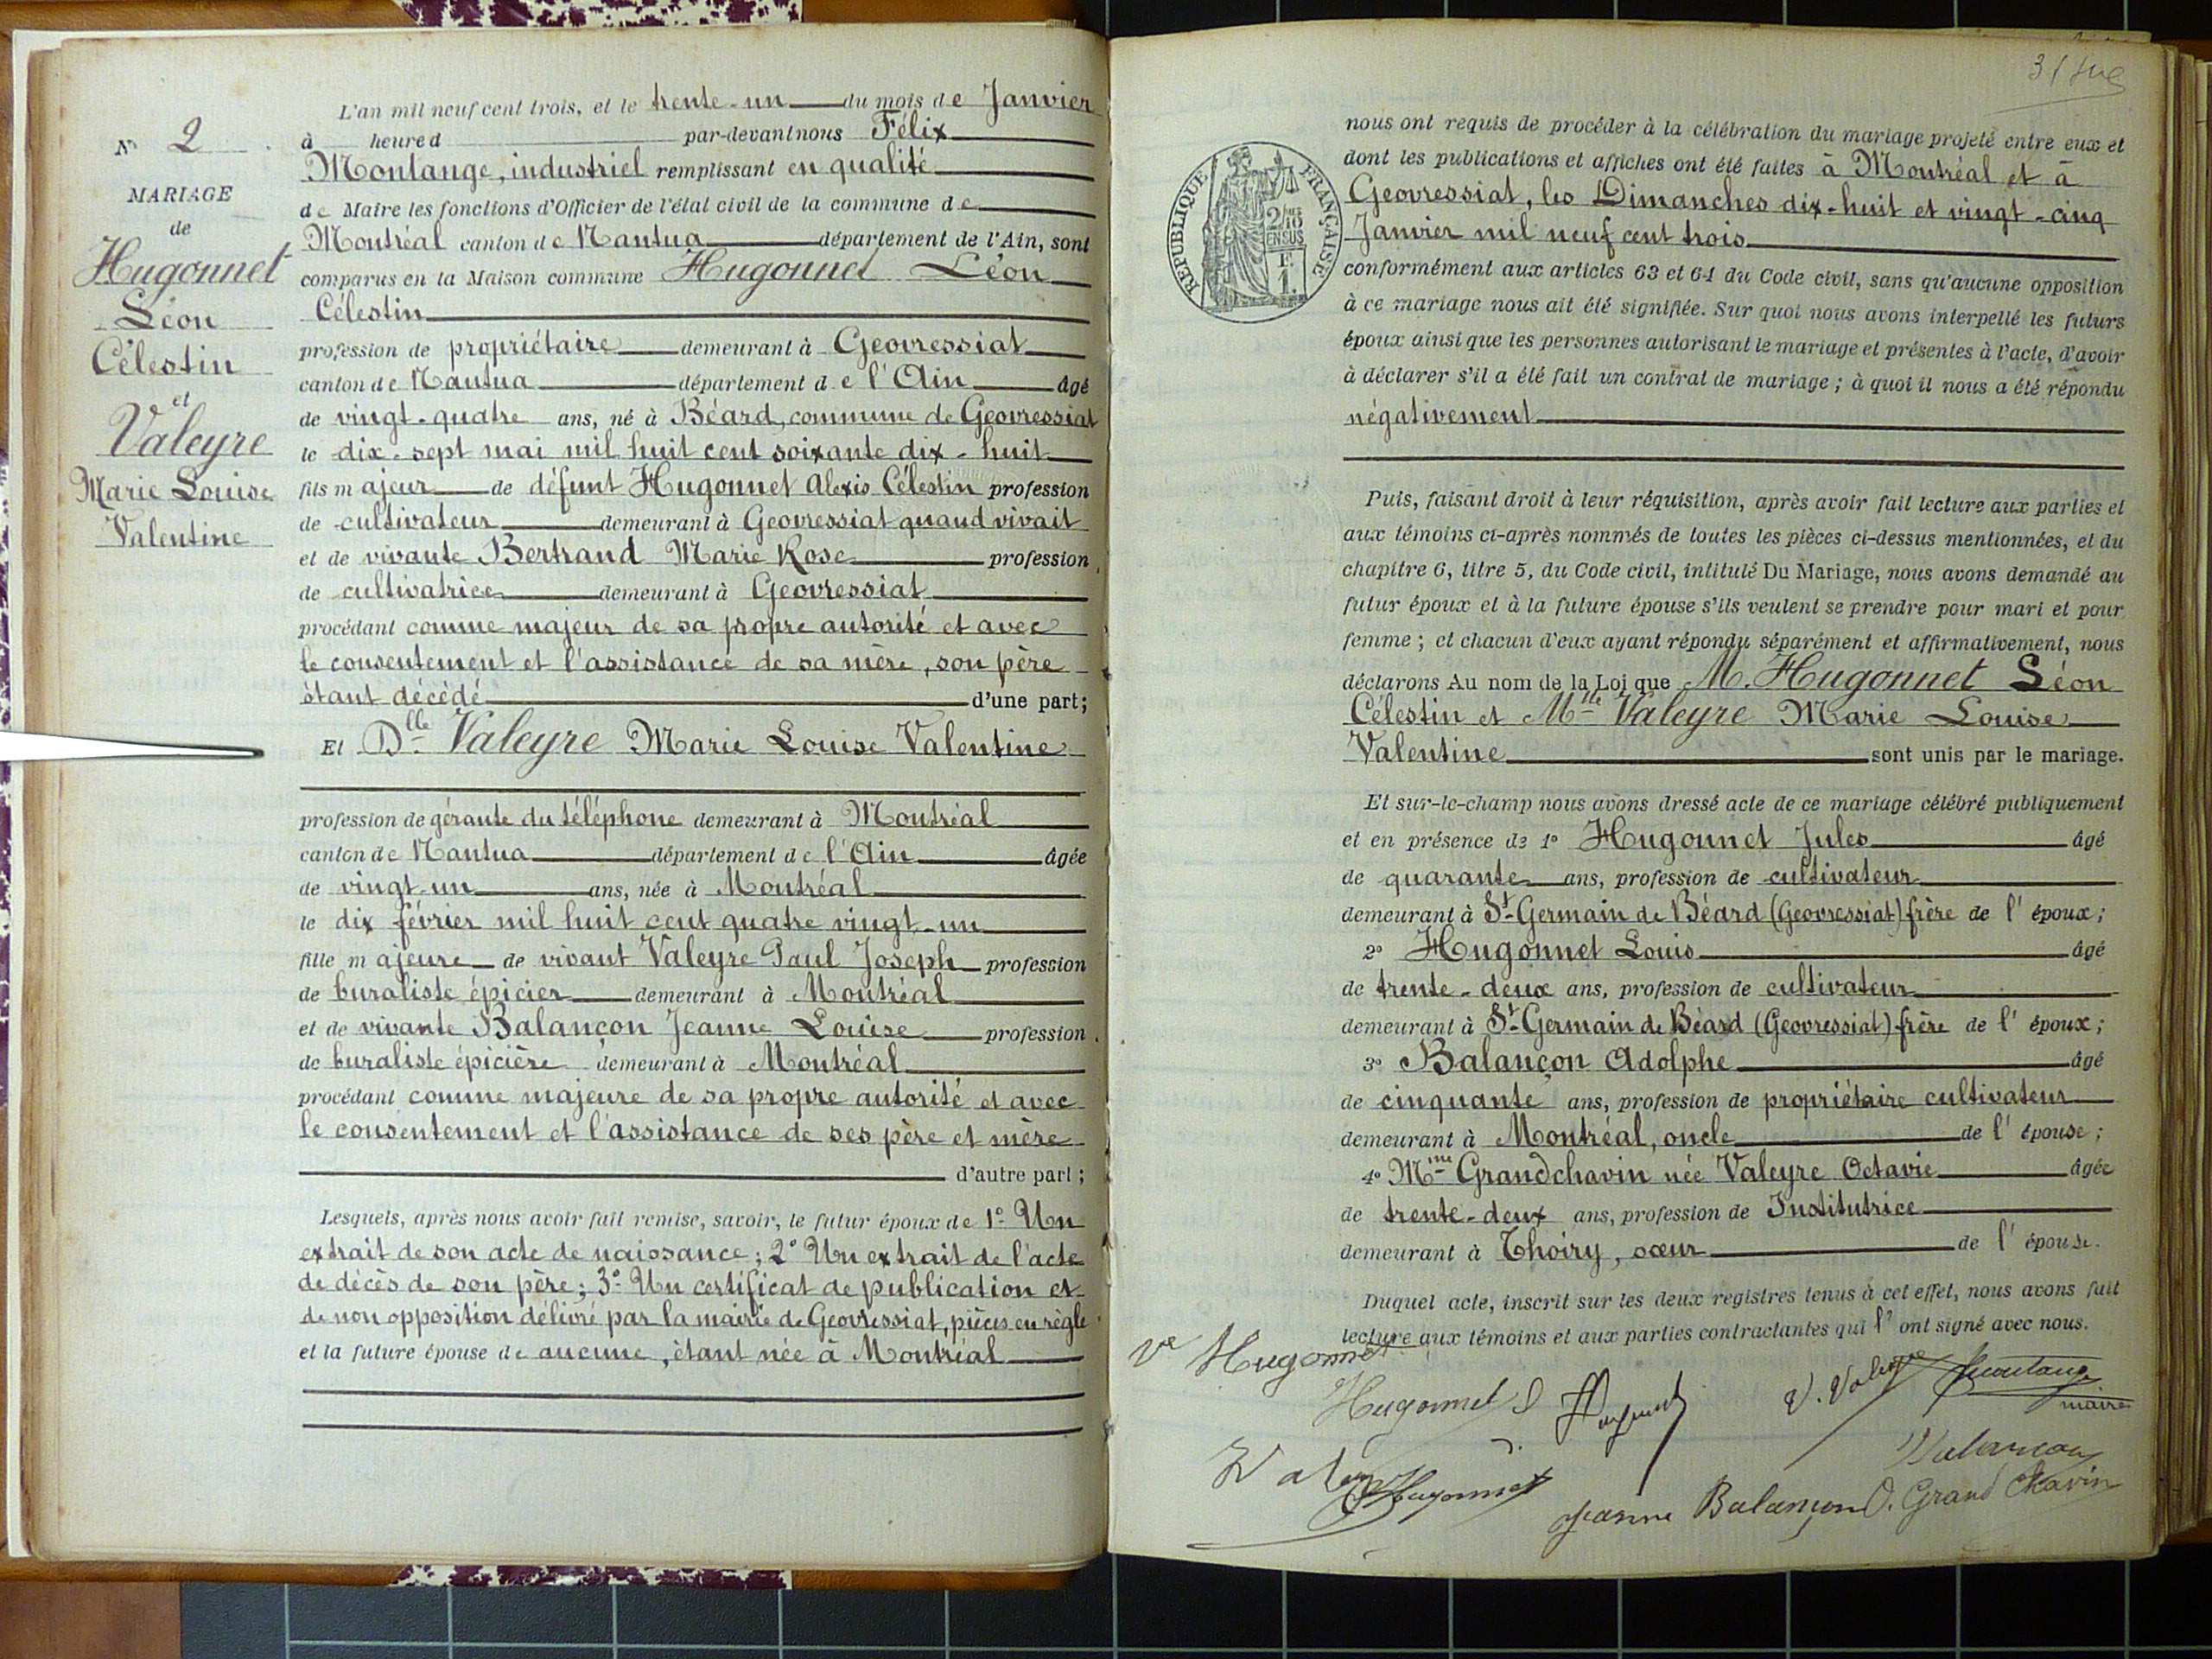 N° 2
MARIAGE
de
Hugonnet
Léon
Célestin
et
Valeyre
Marie Louise
Valentine
L'an mil neuf cent trois, et le trente-un du mois de Janvier
à heure d par-devant nous Félix
Montange, industriel remplissant en qualité
de Maire les fonctions d'Officier de l'état civil de la commune de
Montréal canton de Nantua département de l'Ain, sont
comparus en la Maison commune Hugonnet Léon
Célestin
profession de propriétaire demeurant à Geovressiat
canton de Nantua département de l'Ain âgé
de vingt-quatre ans, né à Béard, commune de Geovressiat
le dix-sept mai mil huit cent soixante dix-huit
fils majeur de défunt Hugonnet Alexis Célestin profession
de cultivateur demeurant à Geovressiat quand vivait
et de vivante Bertrand Marie Rose profession
de cultivatrice demeurant à Geovressiat
procédant comme majeur de sa propre autorité et avec
le consentement et l'assistance de sa mère, son père
étant décédé d'une part;
Et Dlle Valeyre Marie Louise Valentine
profession de gérante du téléphone demeurant à Montréal
canton de Nantua département de l'Ain âgée
de vingt-un ans, née à Montréal
le dix février mil huit cent quatre vingt-un
fille majeure de vivant Valeyre Paul Joseph profession
de buraliste épicier demeurant à Montréal
et de vivante Balançon Jeanne Louise profession
de buraliste épicière demeurant à Montréal
procédant comme majeure de sa propre autorité et avec
le consentement et l'assistance de ses père et mère
d'autre part;
Lesquels, après nous avoir fait remise, savoir, le futur époux de 1° Un
extrait de son acte de naissance; 2° Un extrait de l'acte
de décès de son père; 3° Un certificat de publication et
de non opposition délivré par la mairie de Geovressiat, pièces en règle
et la future épouse de aucune, étant née à Montréal
RÉPUBLIQUE FRANÇAISE
nous ont requis de procéder à la célébration du mariage projeté entre eux et
dont les publications et affiches ont été faites à Montréal et à
Geovressiat, les Dimanches dix-huit et vingt-cinq
Janvier mil neuf cent trois
conformément aux articles 63 et 64 du Code civil, sans qu'aucune opposition
à ce mariage nous ait été signifiée. Sur quoi nous avons interpellé les futurs
époux ainsi que les personnes autorisant le mariage et présentes à l'acte, d'avoir
à déclarer s'il a été fait un contrat de mariage; à quoi il nous a été répondu
négativement
Puis, faisant droit à leur réquisition, après avoir fait lecture aux parties et
aux témoins ci-après nommés de toutes les pièces ci-dessus mentionnées, et du
chapitre 6, titre 5, du Code civil, intitulé Du Mariage, nous avons demandé au
futur époux et à la future épouse s'ils veulent se prendre pour mari et pour
femme; et chacun d'eux ayant répondu séparément et affirmativement, nous
déclarons Au nom de la Loi que M. Hugonnet Léon
Célestin et Mlle Valeyre Marie Louise
Valentine sont unis par le mariage.
Et sur-le-champ nous avons dressé acte de ce mariage célébré publiquement
et en présence de 1° Hugonnet Jules âgé
de quarante ans, profession de cultivateur
demeurant à St-Germain de Béard (Geovressiat) frère de l'époux;
2° Hugonnet Louis âgé
de trente-deux ans, profession de cultivateur
demeurant à St-Germain de Béard (Geovressiat) frère de l'époux;
3° Balançon Adolphe âgé
de cinquante ans, profession de propriétaire cultivateur
demeurant à Montréal, oncle de l'épouse;
4° Mme Grandchavin née Valeyre Octavie âgée
de trente-deux ans, profession de Institutrice
demeurant à Thoiry, sœur de l'épouse.
Duquel acte, inscrit sur les deux registres tenus à cet effet, nous avons fait
lecture aux témoins et aux parties contractantes qui l' ont signé avec nous.
Ve Hugonnet
Hugonnet
V. Valeyre
maire
Hugonnet
Jeanne Balançon
O. Grand Chavin